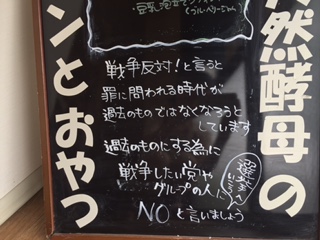 然酵母の
ンとおやつ
・豆乳
戦争反対!と言うと
罪に問われる時代が
過去のものではなくなろうと
しています
過去のものにする為に
戦争したい党や
グループの人に
選挙へ
いこう
NOと言いましょう